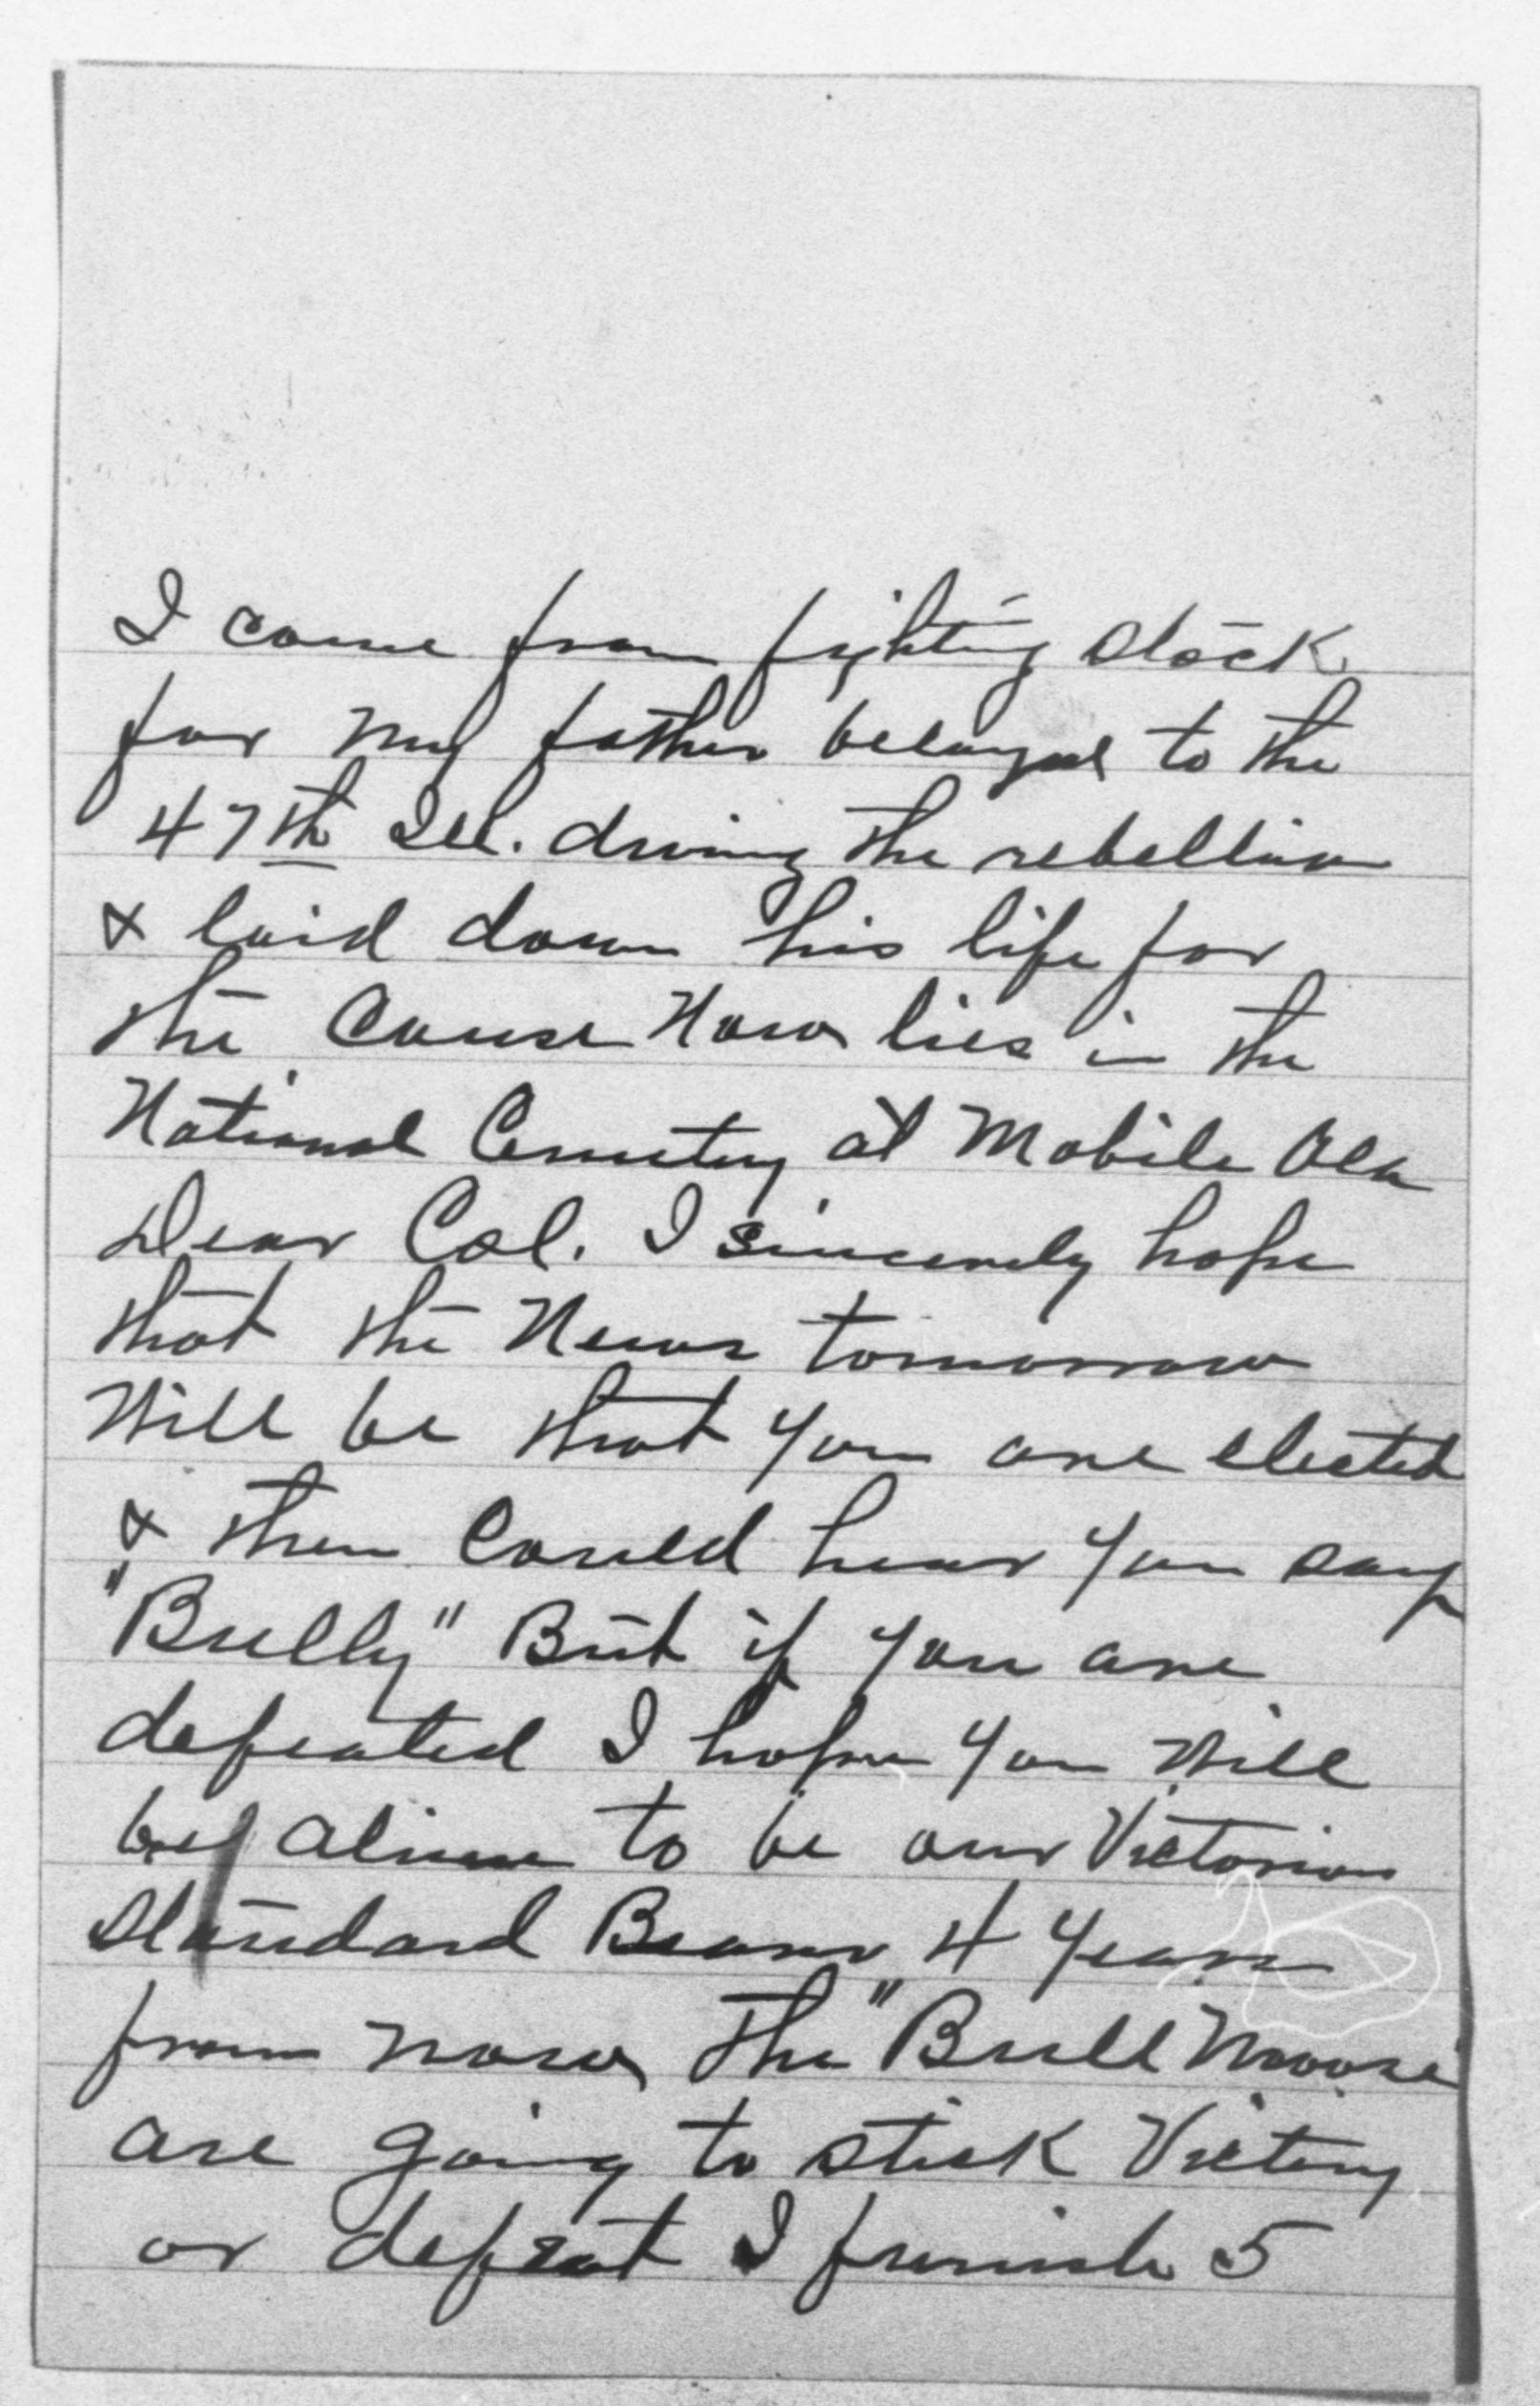 I come from fighting stock
for my father belonged to the
47th Ill. during the rebellion
& laid down his life for
the cause Now lies in the
National Cemetery at Mobile Ala
Dear Col. I sincerely hope
that the News tomorrow
Will be that you are elected
& then could hear you say
"Bully" But if you are
defeated I hope you will
be alive to be our Victorious
Standard Bearer 4 years
from now, The "Bull Moose"
are going to stick Victory
or defeat I furnish 5